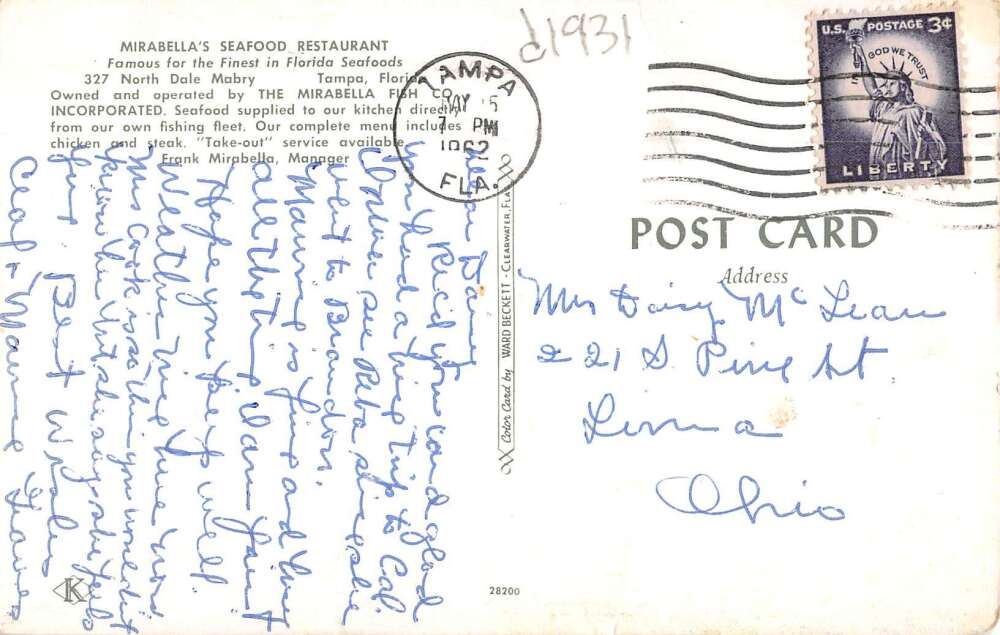 MIRABELLA'S SEAFOOD RESTAURANT
Famous for the Finest in Florida Seafoods
327 North Dale Mabry Tampa, Florida
Owned and operated by THE MIRABELLA FISH CO.
INCORPORATED. Seafood supplied to our kitchen directly
from our own fishing fleet. Our complete menu includes
chicken and steak. "Take-out" service available.
Frank Mirabella, Manager
d1931
TAMPA
MAY 5
7 PM
1962
FLA.
U.S. POSTAGE 3¢
IN GOD WE TRUST
LIBERTY
POST CARD
Address
Mrs Daisy McLean
221 S. Pine St
Lima
Ohio
Color Card by WARD BECKETT - CLEARWATER, FLA.
28200
K
Dear Daisy
Rec'd your card glad
you had a fine trip to Cal.
Don't ever see Reba since she
went to Brandon.
Mamie is fine and busy
all the time. I am fair
Hope you keep well.
Weather fine here now
Mrs Cook is so thin you wouldnt
know her but she says she feels
fine Best wishes
Ceaf + Mamie Graves